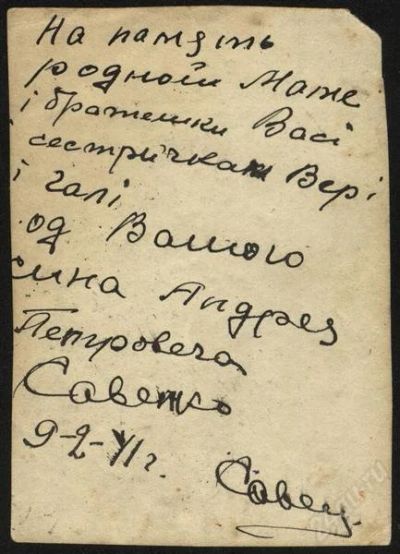 На память
родной Маме
і братешки Васі
сестричкам Вері
і Галі
од Вашого
сина Андрея
Петровеча
Савенко
9-2-41г.
Савец